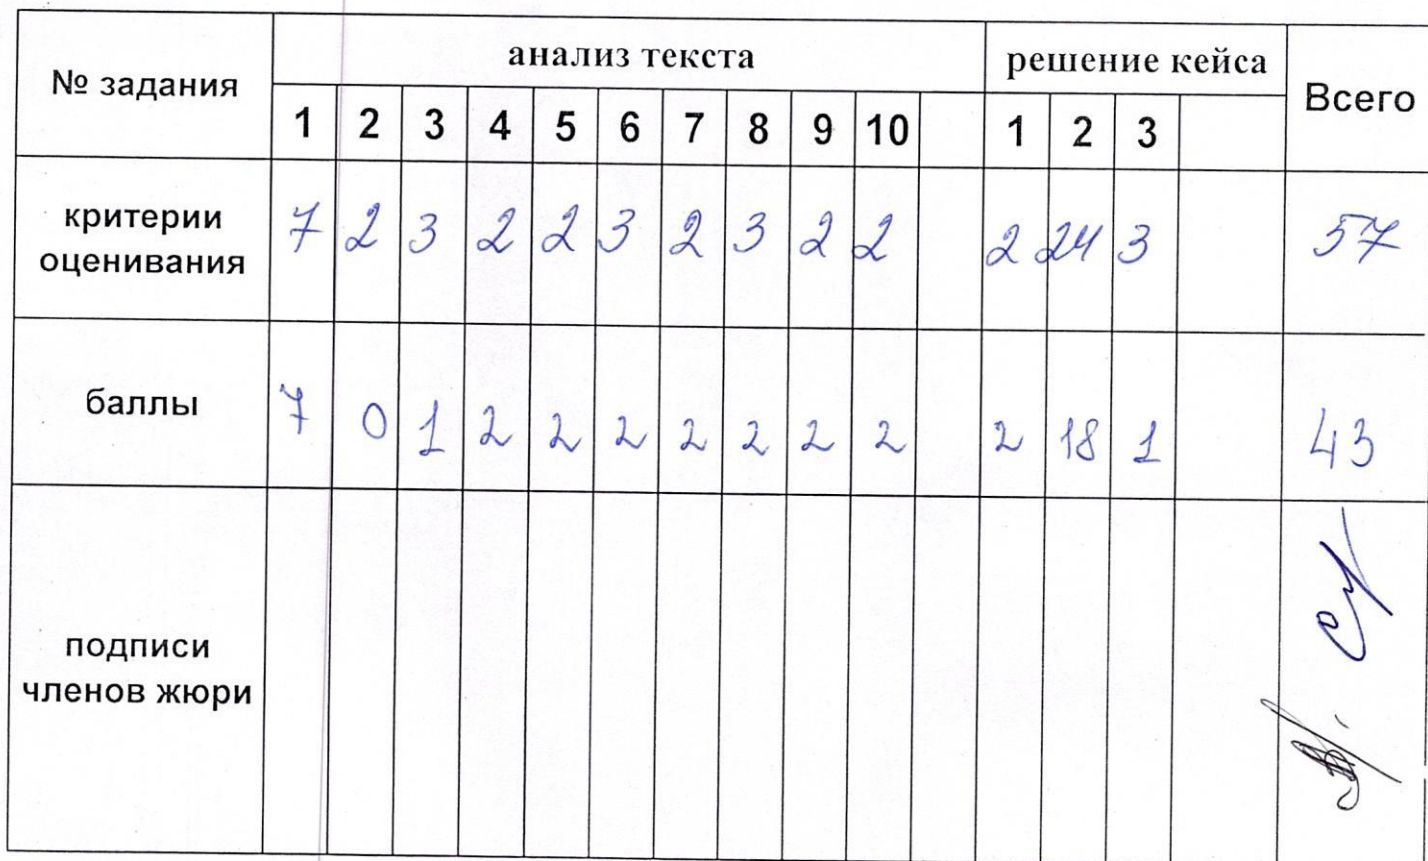 № задания анализ текста решение кейса Всего
1 2 3 4 5 6 7 8 9 10 1 2 3
критерии оценивания 7 2 3 2 2 3 2 3 2 2 2 24 3 57
баллы 7 0 1 2 2 2 2 2 2 2 2 18 1 43
подписи
членов жюри